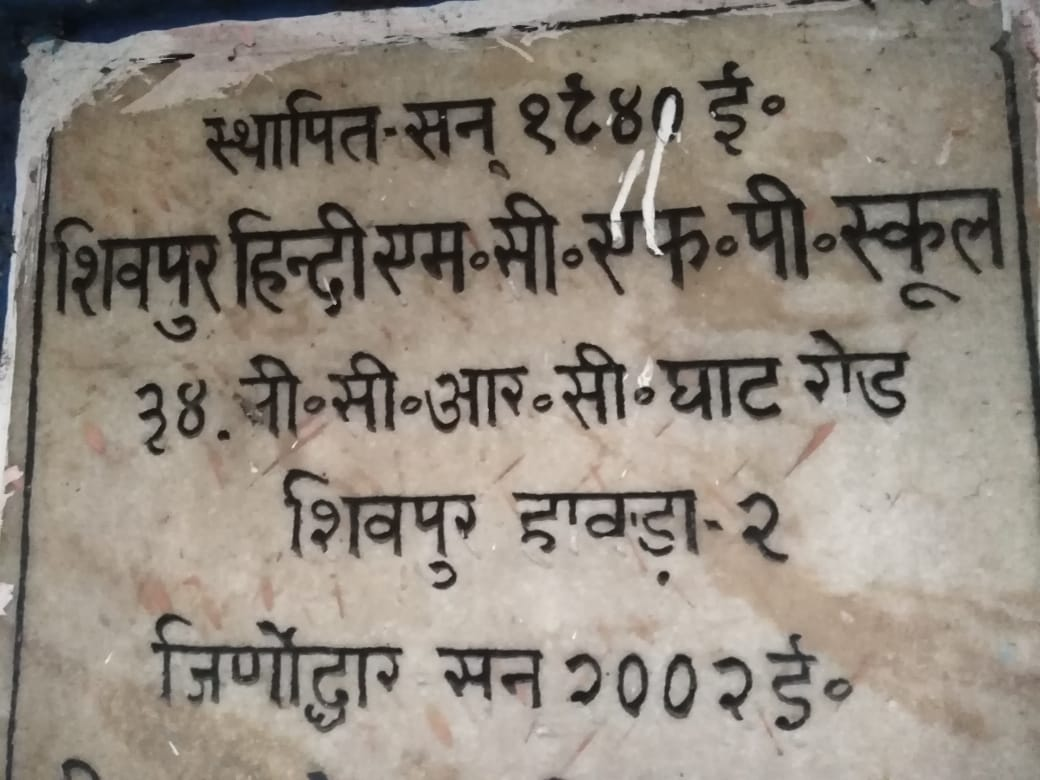 स्थापित-सन् १९४० ई॰
शिवपुर हिन्दी एम॰सी॰एफ॰पी॰स्कूल
३४. पी॰सी॰आर॰सी॰घाट रोड
शिवपुर हावड़ा-२
जिर्णोद्धार सन २००२ ई॰